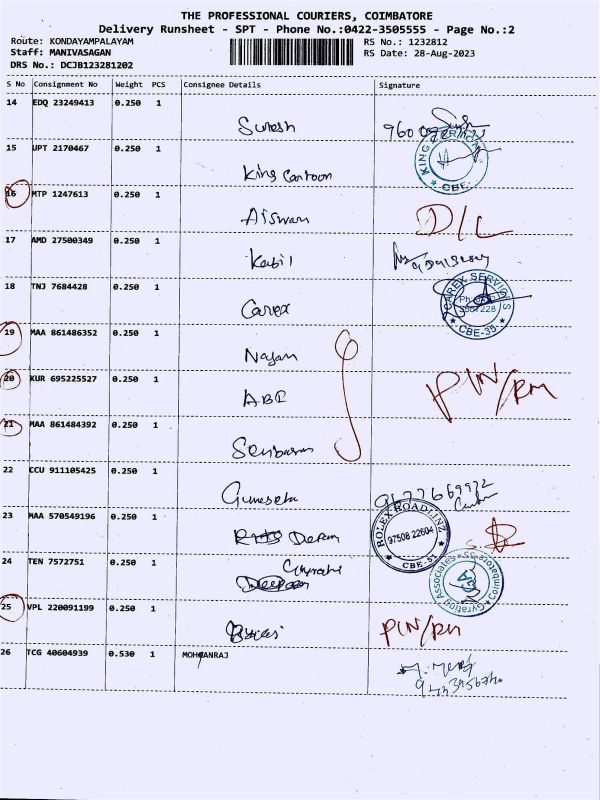 THE PROFESSIONAL COURIERS, COIMBATORE
Delivery Runsheet - SPT - Phone No.:0422-3505555 - Page No.:2
Route: KONDAYAMPALAYAM
Staff: MANIVASAGAN
DRS No.: DCJB123281202
RS No.: 1232812
RS Date: 28-Aug-2023
S No Consignment No Weight PCS Consignee Details Signature
14 EDQ 23249413 0.250 1
Suresh
15 UPT 2170467 0.250 1
King Cartoon
KING
CBE
16 MTP 1247613 0.250 1
Aiswari
D/L
17 AMD 27500349 0.250 1
Kabil
18 TNJ 7684428 0.250 1
Carex
CAREX SERVICES
CBE-35
19 MAA 861486352 0.250 1
Nayan
20 KUR 695225527 0.250 1
ABI
PIN/RM
21 MAA 861484392 0.250 1
22 CCU 911105425 0.250 1
23 MAA 570549196 0.250 1
ROLEX ROADLINZ
97508 22604
CBE-51
24 TEN 7572751 0.250 1
Gyrating Associates Coimbatore-35
25 VPL 220091199 0.250 1
PIN/RM
26 TCG 40604939 0.530 1 MOHANRAJ